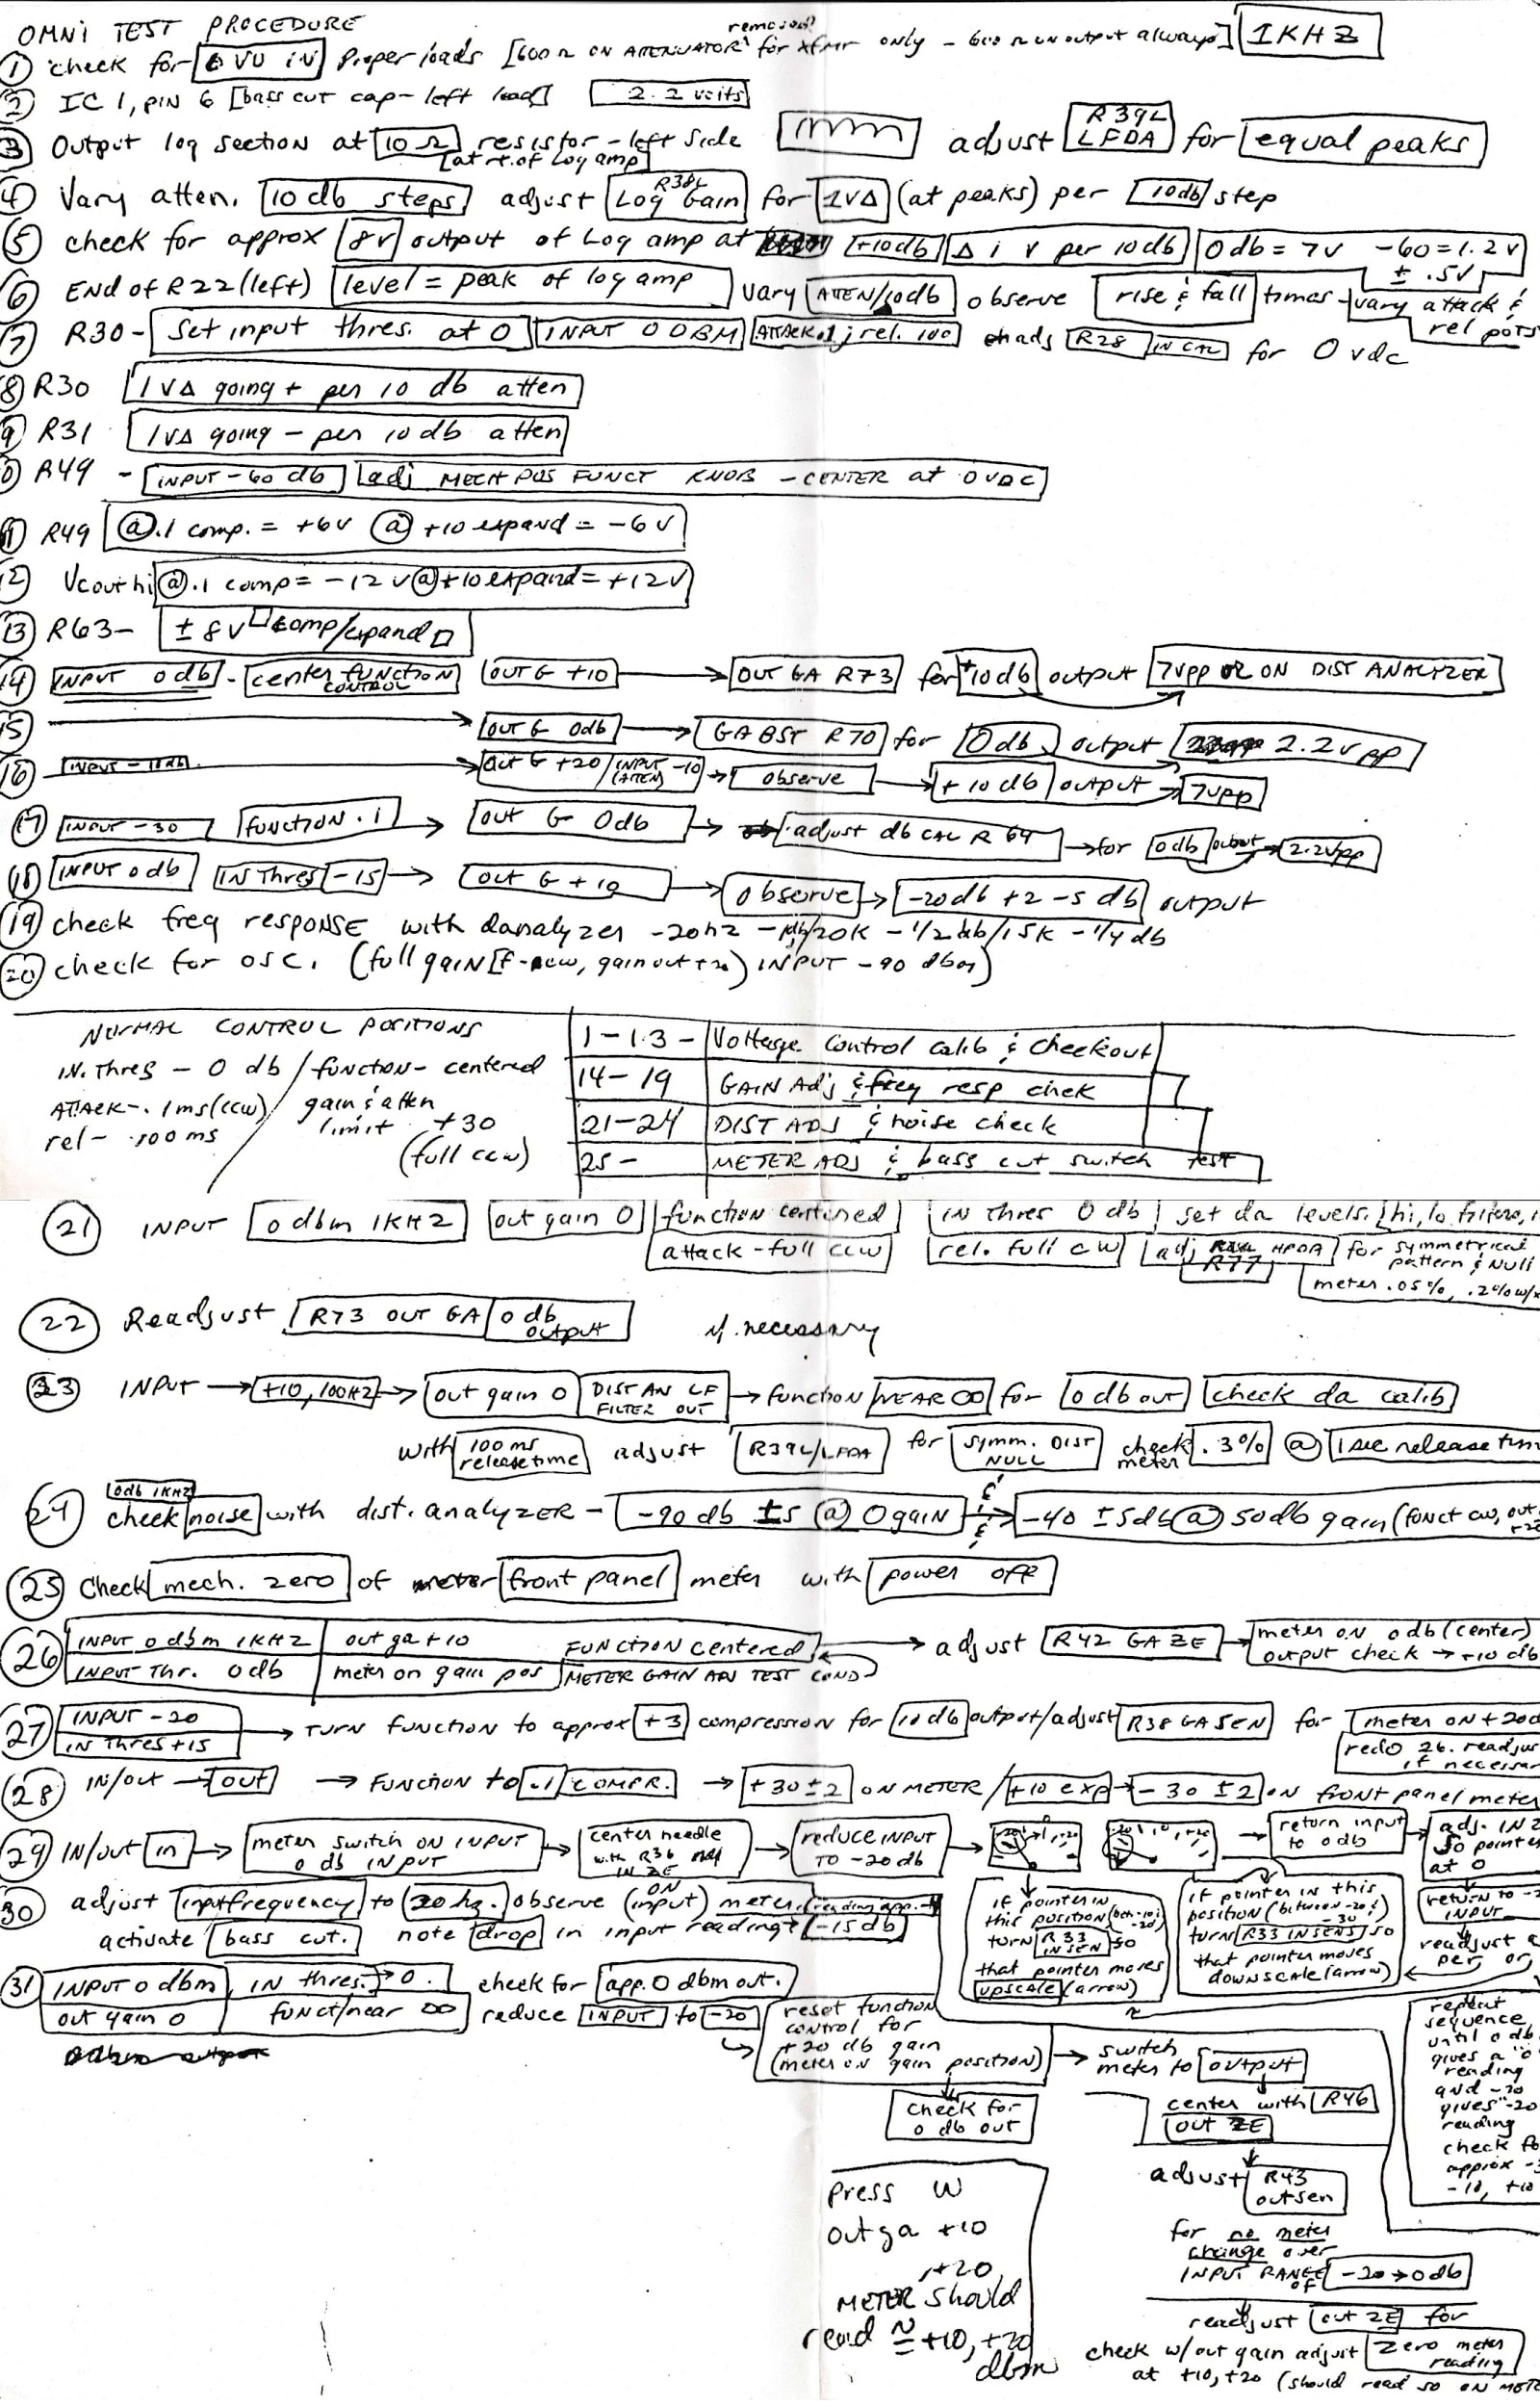 OMNI TEST PROCEDURE
① check for 0 VU IN Proper loads [600 Ω ON ATTENUATOR removed for xfmr only - 600 Ω on output always] 1KHZ
② IC 1, PIN 6 [bass cut cap - left lead] 2.2 volts
③ Output log section at 10 Ω resistor - left side [at rt. of Log amp] adjust R39L LFDA for equal peaks
④ Vary atten. 10 db steps adjust R38L Log Gain for 1V∆ (at peaks) per 10db step
⑤ check for approx 8V output of Log amp at +10db ∆ 1 V per 10db 0db = 7V -60 = 1.2V ± .5V
⑥ End of R22 (left) level = peak of log amp vary ATEN/10db observe rise & fall times - vary attack & rel pots
⑦ R30 - Set input thres. at 0 INPUT 0 DBM ATTACK .1; rel. 100 R28 IN CAL for 0 vdc
⑧ R30 1V∆ going + per 10 db atten
⑨ R31 1V∆ going - per 10 db atten
⑩ R49 - INPUT -60 db adj MECH POS FUNCT KNOB - CENTER at 0VDC
⑪ R49 @.1 comp. = +6V @ +10 expand = -6V
⑫ Vcouthi @.1 comp = -12V @ +10 expand = +12V
⑬ R63 - ± 8V comp/expand
⑭ INPUT 0db - center function CONTROL OUT G +10 → OUT GA R73 for +10db output 7Vpp OR ON DIST ANALYZER
⑮ → OUT G 0db → GA BST R70 for 0db output 2.2Vpp
⑯ INPUT -10db → OUT G +20/INPUT -10 (ATTEN) → observe → +10db output → 7Vpp
⑰ INPUT -30 FUNCTION .1 → out G 0db → adjust db CAL R64 → for 0db output → 2.2Vpp
⑱ INPUT 0db IN Thres -15 → out G +10 → observe → -20db +2 -5 db output
⑲ check freq response with danalyzer -20hz - 1db/20K - 1/2 db/15K - 1/4 db
⑳ check for osc. (full gain [f-ccw, gain out +20) INPUT -90 dbm)
NORMAL CONTROL POSITIONS
IN. Thres - 0 db / function - centered
ATTACK - .1ms (ccw) / gain & atten limit +30 (full ccw)
rel - 100 ms
1-13 - Voltage Control Calib & Checkout
14-19 GAIN Adj & freq resp chek
21-24 DIST ADJ & noise check
25- METER ADJ & bass cut switch test
㉑ INPUT 0dbm 1KHZ out gain 0 function centered IN Thres 0db set da levels. [hi, lo filters,
attack - full ccw rel. full cw adj HFDA R77 for symmetrical pattern & Null
meter .05%, .2%
㉒ Readjust R73 OUT GA 0 db output if necessary
㉓ INPUT → +10, 100HZ → out gain 0 DIST AN LF FILTER OUT → function NEAR ∞ for 0db out check da calib
with 100 ms release time adjust R39L/LFDA for symm. DIST NULL check meter .3% @ 1 sec release
㉔ 0db 1KHZ check noise with dist. analyzer - -90 db ±5 @ 0 gain & → -40 ±5db @ 50db gain (funct cw, out +20
㉕ Check mech. zero of front panel meter with power off
㉖ INPUT 0 dbm 1KHZ out ga +10 FUNCTION centered → adjust R42 GA ZE → meter ON 0db (center)
INPUT Thr. 0db meter on gain pos METER GAIN ADJ TEST COND output check → +10 db
㉗ INPUT -20 → TURN FUNCTION to approx +3 compression for 10db output/adjust R38 GA SEN for meter ON +20
IN Thres +15 redo 26. readjust if necessary
㉘ IN/out → out → FUNCTION to .1 COMPR. → +30 ±2 ON METER / +10 exp → -30 ±2 on front panel meter
㉙ IN/out in → meter switch ON INPUT 0 db INPUT → center needle with R36 IN ZE → reduce INPUT TO -20db → → return input to 0db → adj. IN Z so pointer at 0
return to INPUT
readjust
if pointer in this position (betw -10 & -20) turn R33 IN SEN so that pointer moves upscale (arrow)
if pointer in this position (between -20 & -30 turn R33 IN SENS so that pointer moves downscale (arrow)
㉚ adjust input frequency to 20 hz. observe (ON input) meter. reading app.
activate bass cut. note drop in input reading -15db
㉛ INPUT 0 dbm IN thres. → 0. check for app. 0 dbm out.
out gain 0 funct/near ∞ reduce INPUT to -20
reset function control for +20 db gain (meter on gain position) → switch meter to output
check for 0 db out
center with R46 OUT ZE
adjust R43 out sen
for no meter change over INPUT RANGE OF -20→0db
readjust out ZE for Zero meter reading
check w/out gain adjust at +10, +20 (should read so ON
repeat sequence until 0 db gives a "0 reading and -20 gives "-20 reading check approx -10, +10
press
out ga +10
+20
METER should
read ≅ +10, +20
dbm